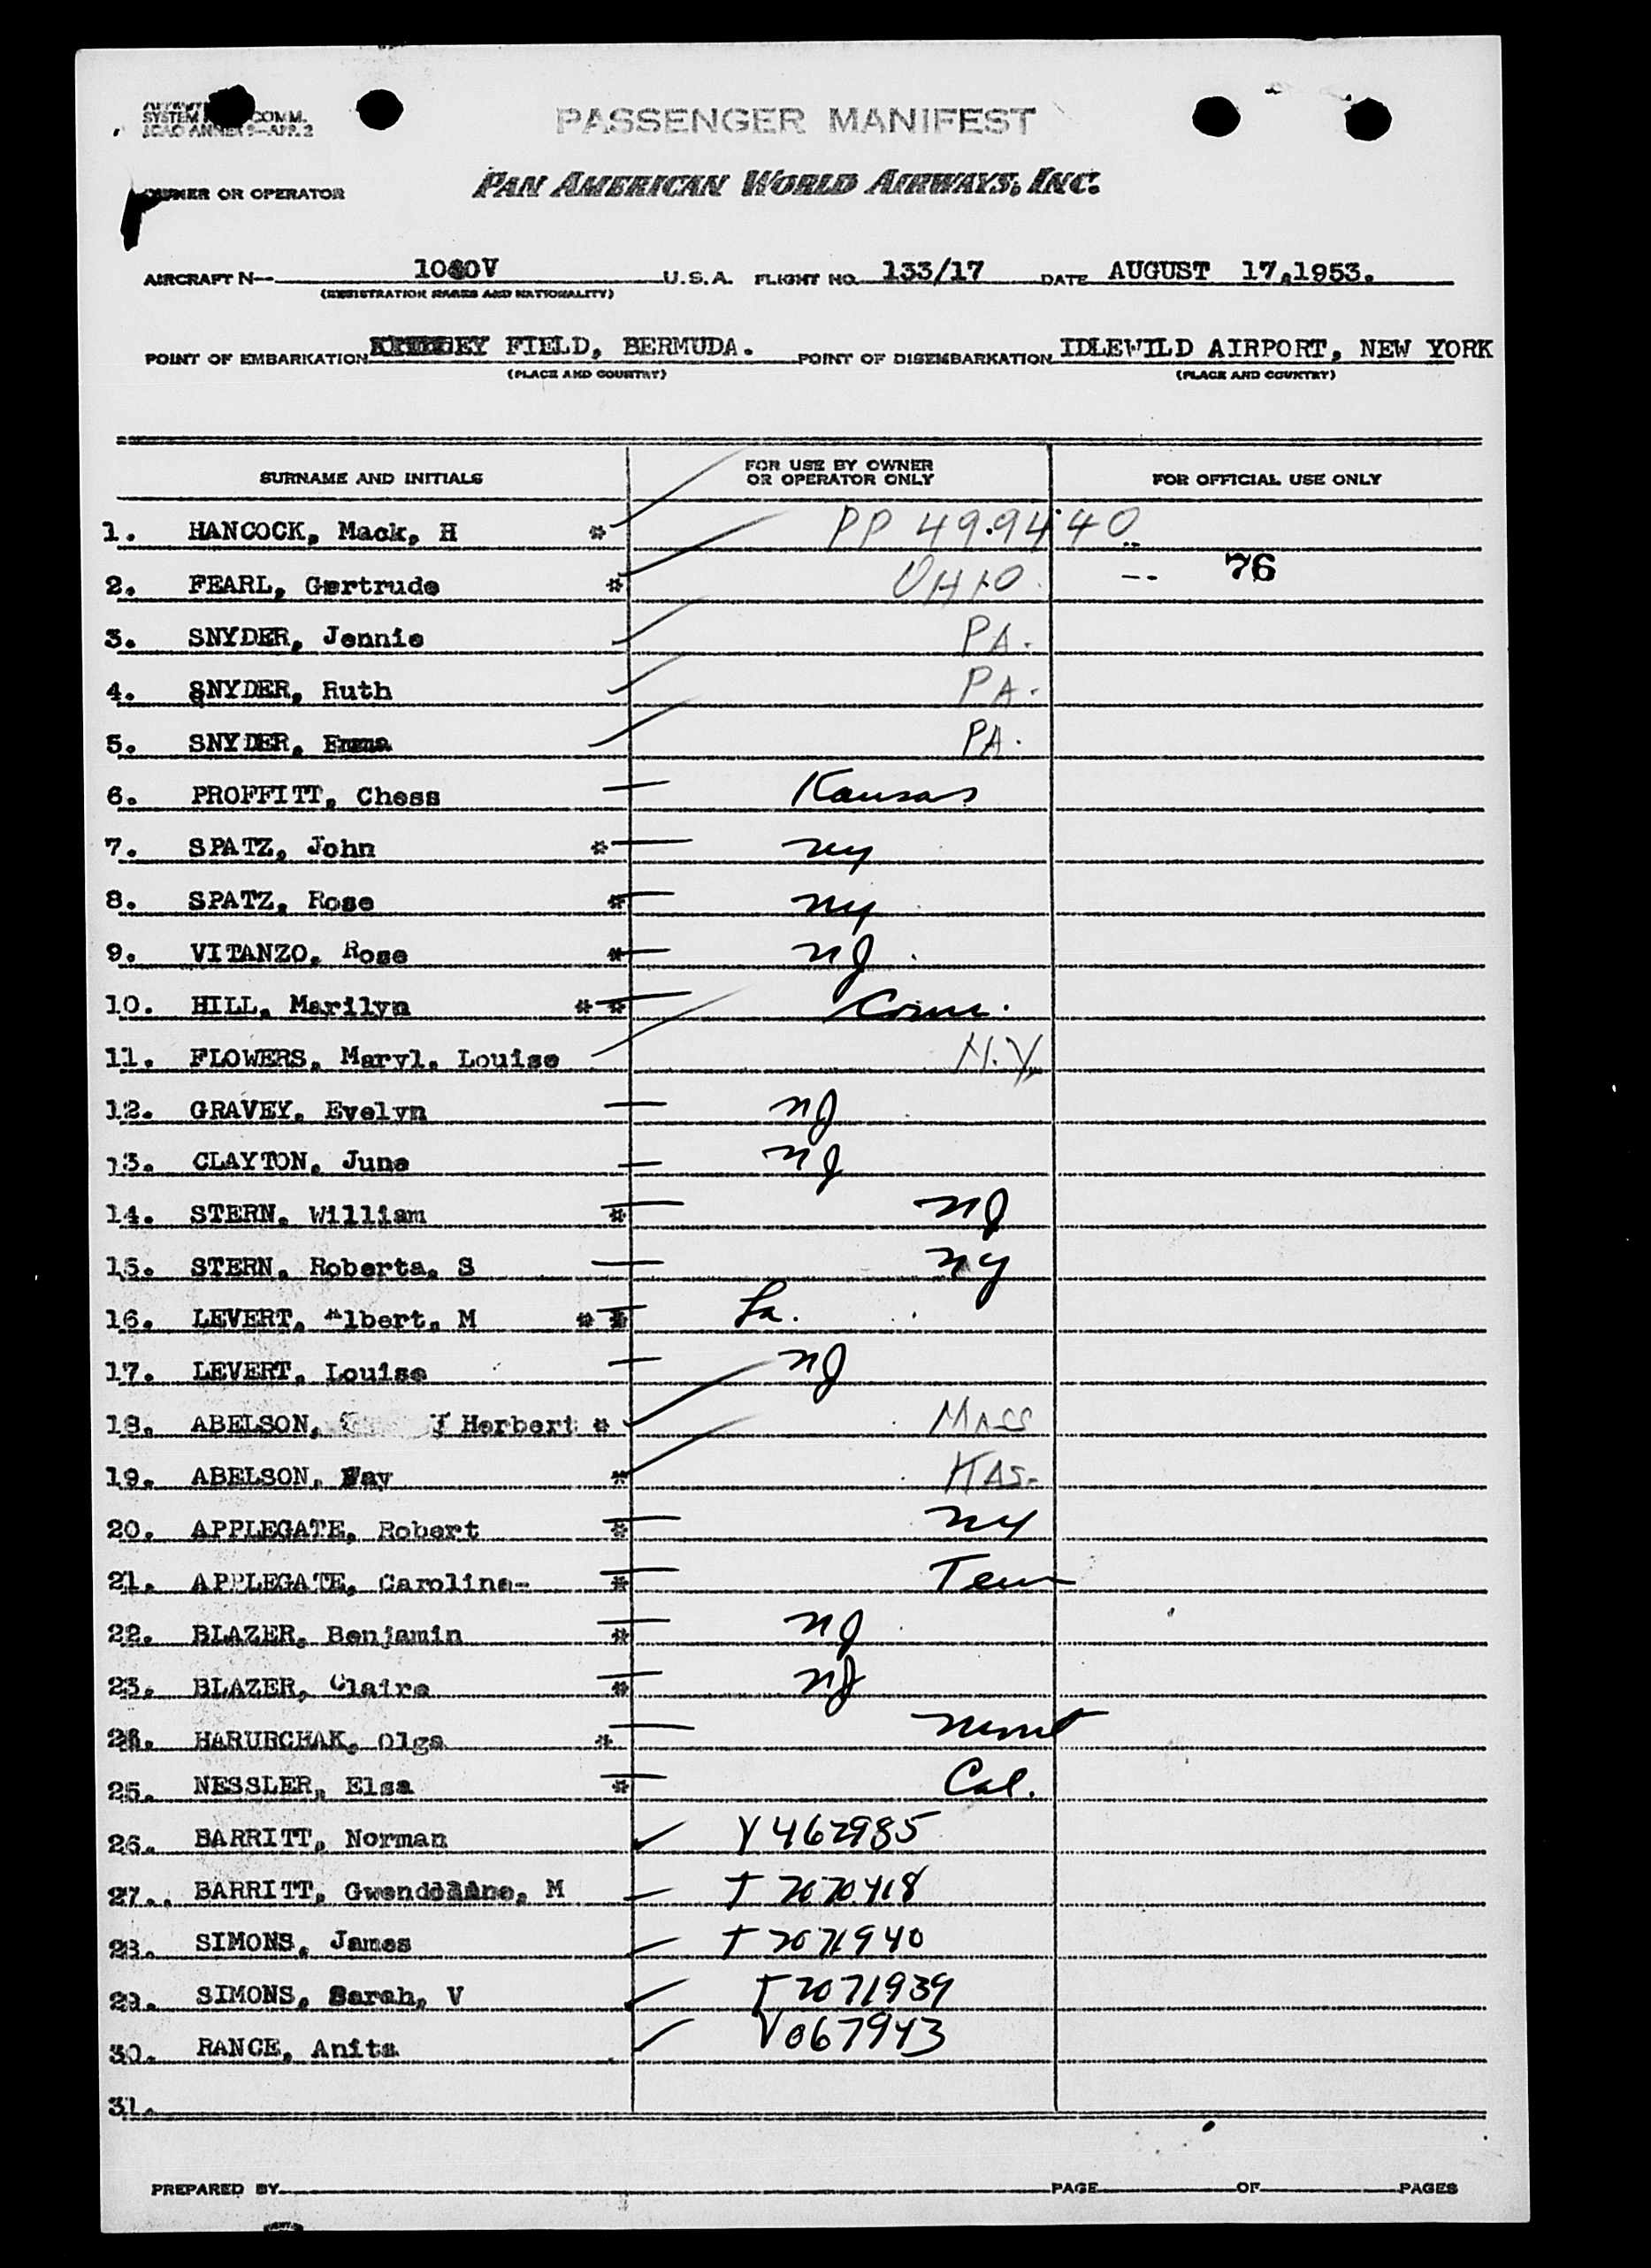 SYSTEM COMM.
ICAO ANNEX 9—APP. 2
PASSENGER MANIFEST
OWNER OR OPERATOR PAN AMERICAN WORLD AIRWAYS, INC.
AIRCRAFT N— U.S.A. FLIGHT NO. 133/17 DATE AUGUST 17,1953.
(REGISTRATION MARKS AND NATIONALITY)
POINT OF EMBARKATION FIELD, BERMUDA. POINT OF DISEMBARKATION IDLEWILD AIRPORT, NEW YORK
(PLACE AND COUNTRY) (PLACE AND COUNTRY)
SURNAME AND INITIALS FOR USE BY OWNER OR OPERATOR ONLY FOR OFFICIAL USE ONLY
1. HANCOCK, Mack, H * PP 49.9440
2. FEARL, Gertrude * OHIO -- 76
3. SNYDER, Jennie PA.
4. SNYDER, Ruth PA.
5. SNYDER, Emma PA.
6. PROFFITT, Chess Kansas
7. SPATZ, John * ny
8. SPATZ, Rose * ny
9. VITANZO, Rose * nJ
10. HILL, Marilyn ** Conn.
11. FLOWERS, Maryl, Louise N.Y.
12. GRAVEY, Evelyn nJ
13. CLAYTON, June nJ
14. STERN, William * nJ
15. STERN, Roberta, S ny
16. LEVERT, Albert, M ** La.
17. LEVERT, Louise nJ
18. ABELSON, Herbert * MASS
19. ABELSON, Fay * MAS-
20. APPLEGATE, Robert * ny
21. APPLEGATE, Caroline- * Tenn
22. BLAZER, Benjamin * nJ
23. BLAZER, Claire * nJ
24. HARUBCHAK, Olga *
25. NESSLER, Elsa * Cal.
26. BARRITT, Norman V 462985
27. BARRITT, M T 2070418
28. SIMONS, James T 2071940
29. SIMONS, Sarah, V T 2071939
30. RANCE, Anita V067943
31.
PREPARED BY PAGE OF PAGES